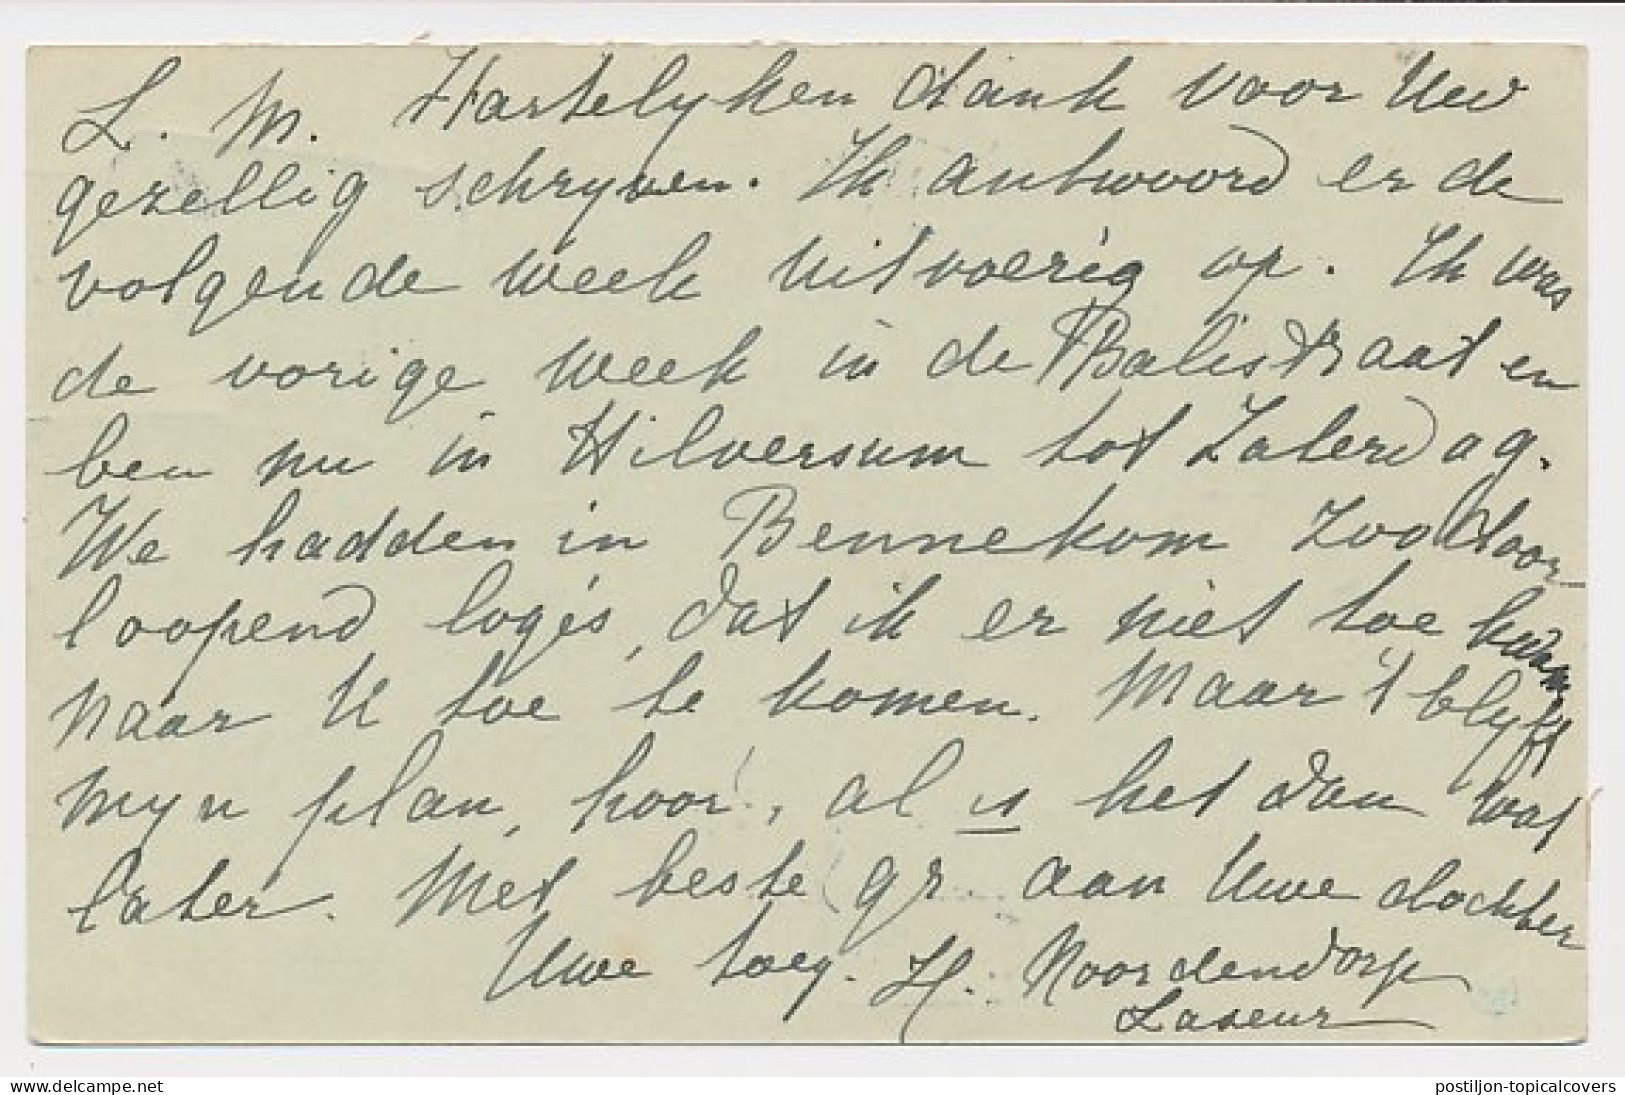 L. M. Hartelyken dank voor Uw
gezellig schryven. Ik antwoord er de
volgende week uitvoerig op. Ik was
de vorige week in de Balistraat en
ben nu in Hilversum tot Zaterdag.
We hadden in Bennekom zoo door-
loopend logés, dat ik er niet toe kwam
naar U toe te komen. Maar 't blyft
myn plan, hoor, al is het dan wat
later. Met beste gr. aan Uwe dochter
Uwe toeg. H. Noordendorp
Laseur
www.delcampe.net
postiljon-topicalcovers